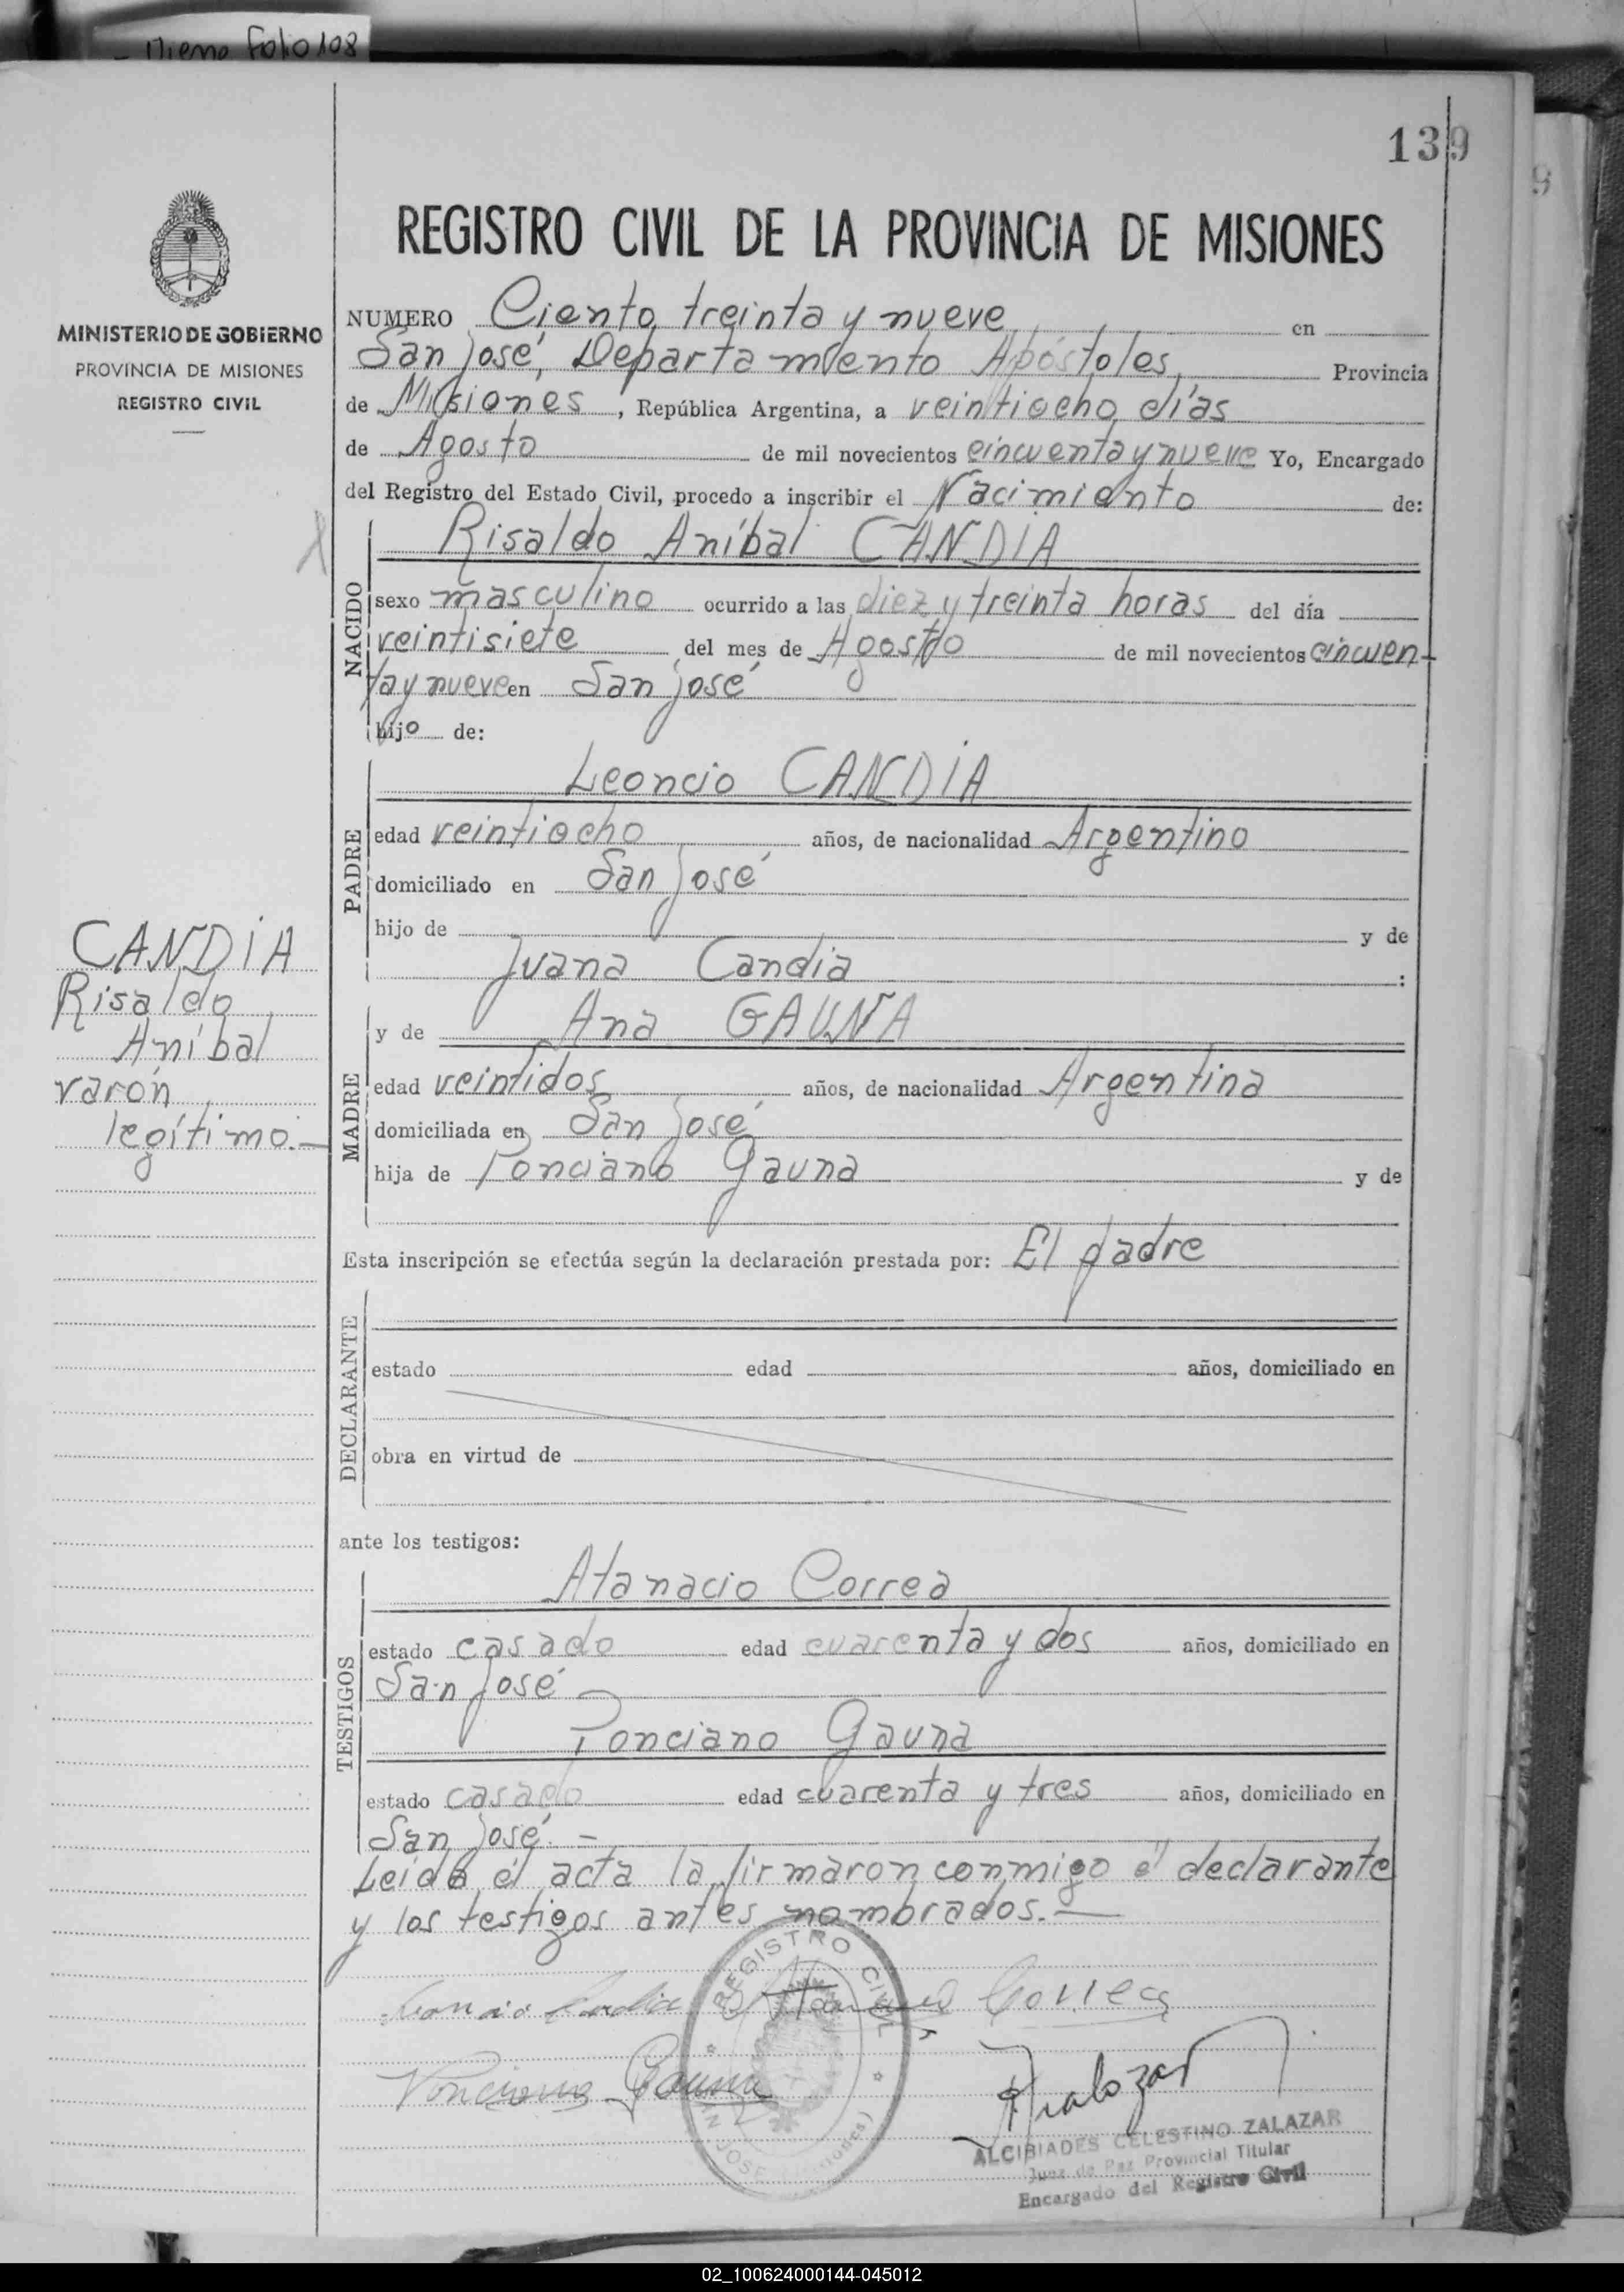 Folio 108
139
9
REGISTRO CIVIL DE LA PROVINCIA DE MISIONES
MINISTERIO DE GOBIERNO
PROVINCIA DE MISIONES
REGISTRO CIVIL
NUMERO Ciento treinta y nueve en
San José, Departamento Apóstoles, Provincia
de Misiones, República Argentina, a veintiocho días
de Agosto de mil novecientos cincuenta y nueve Yo, Encargado
del Registro del Estado Civil, procedo a inscribir el Nacimiento de:
NACIDO
Risaldo Aníbal CANDIA
sexo masculino ocurrido a las diez y treinta horas del día
veintisiete del mes de Agosto de mil novecientos cincuen-
ta y nueve en San José
hijo de:
PADRE
Leoncio CANDIA
edad veintiocho años, de nacionalidad Argentino
domiciliado en San José
hijo de y de
Juana Candia :
CANDIA
Risaldo
Aníbal
varón
legítimo.-
MADRE
y de Ana GAUNA
edad veintidos años, de nacionalidad Argentina
domiciliada en San José
hija de Ponciano Gauna y de
Esta inscripción se efectúa según la declaración prestada por: El padre
DECLARANTE
estado edad años, domiciliado en
obra en virtud de
ante los testigos:
TESTIGOS
Atanacio Correa
estado casado edad cuarenta y dos años, domiciliado en
San José
Ponciano Gauna
estado casado edad cuarenta y tres años, domiciliado en
San José.-
Leida el acta la firmaron conmigo el declarante
y los testigos antes nombrados.-
Leoncio Candia Atanacio Correa
Ponciano Gauna
REGISTRO CIVIL
SAN JOSE (Misiones)
ALCIBIADES CELESTINO ZALAZAR
Juez de Paz Provincial Titular
Encargado del Registro Civil
02_100624000144-045012